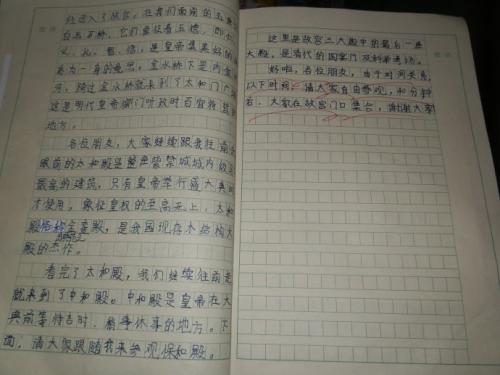 进入了故宫，在我们面前的五座
白玉石桥，它们象征着五德，即仁
义、礼、智、信，是皇帝集美好的
于一身的
河，跨过金水桥就来到了太和门广
这是明代皇帝御门听政时百官
地方。
各位朋友，大家继续跟我往前
眼前的太和殿是整座紫禁城城内
最高的建筑，只有皇帝举行盛大典
才使用。象征皇权的至高无上，太和
殿俗称金銮殿，是我国现存木结构大
殿的杰作。
看完了太和殿，我们继续往前走
就来到了中和殿。中和殿是皇帝在大
典前等待吉时，休息的地方。下
面，请大家跟随我来参观保和殿。
这里是故宫三大殿中的最后一座
大殿，是清代的国宴厅及科举考场。
好啦，各位朋友，由于时间关系，
以下时间，请大家自由参观，分钟
后，大家在故宫门口集合，谢谢大家